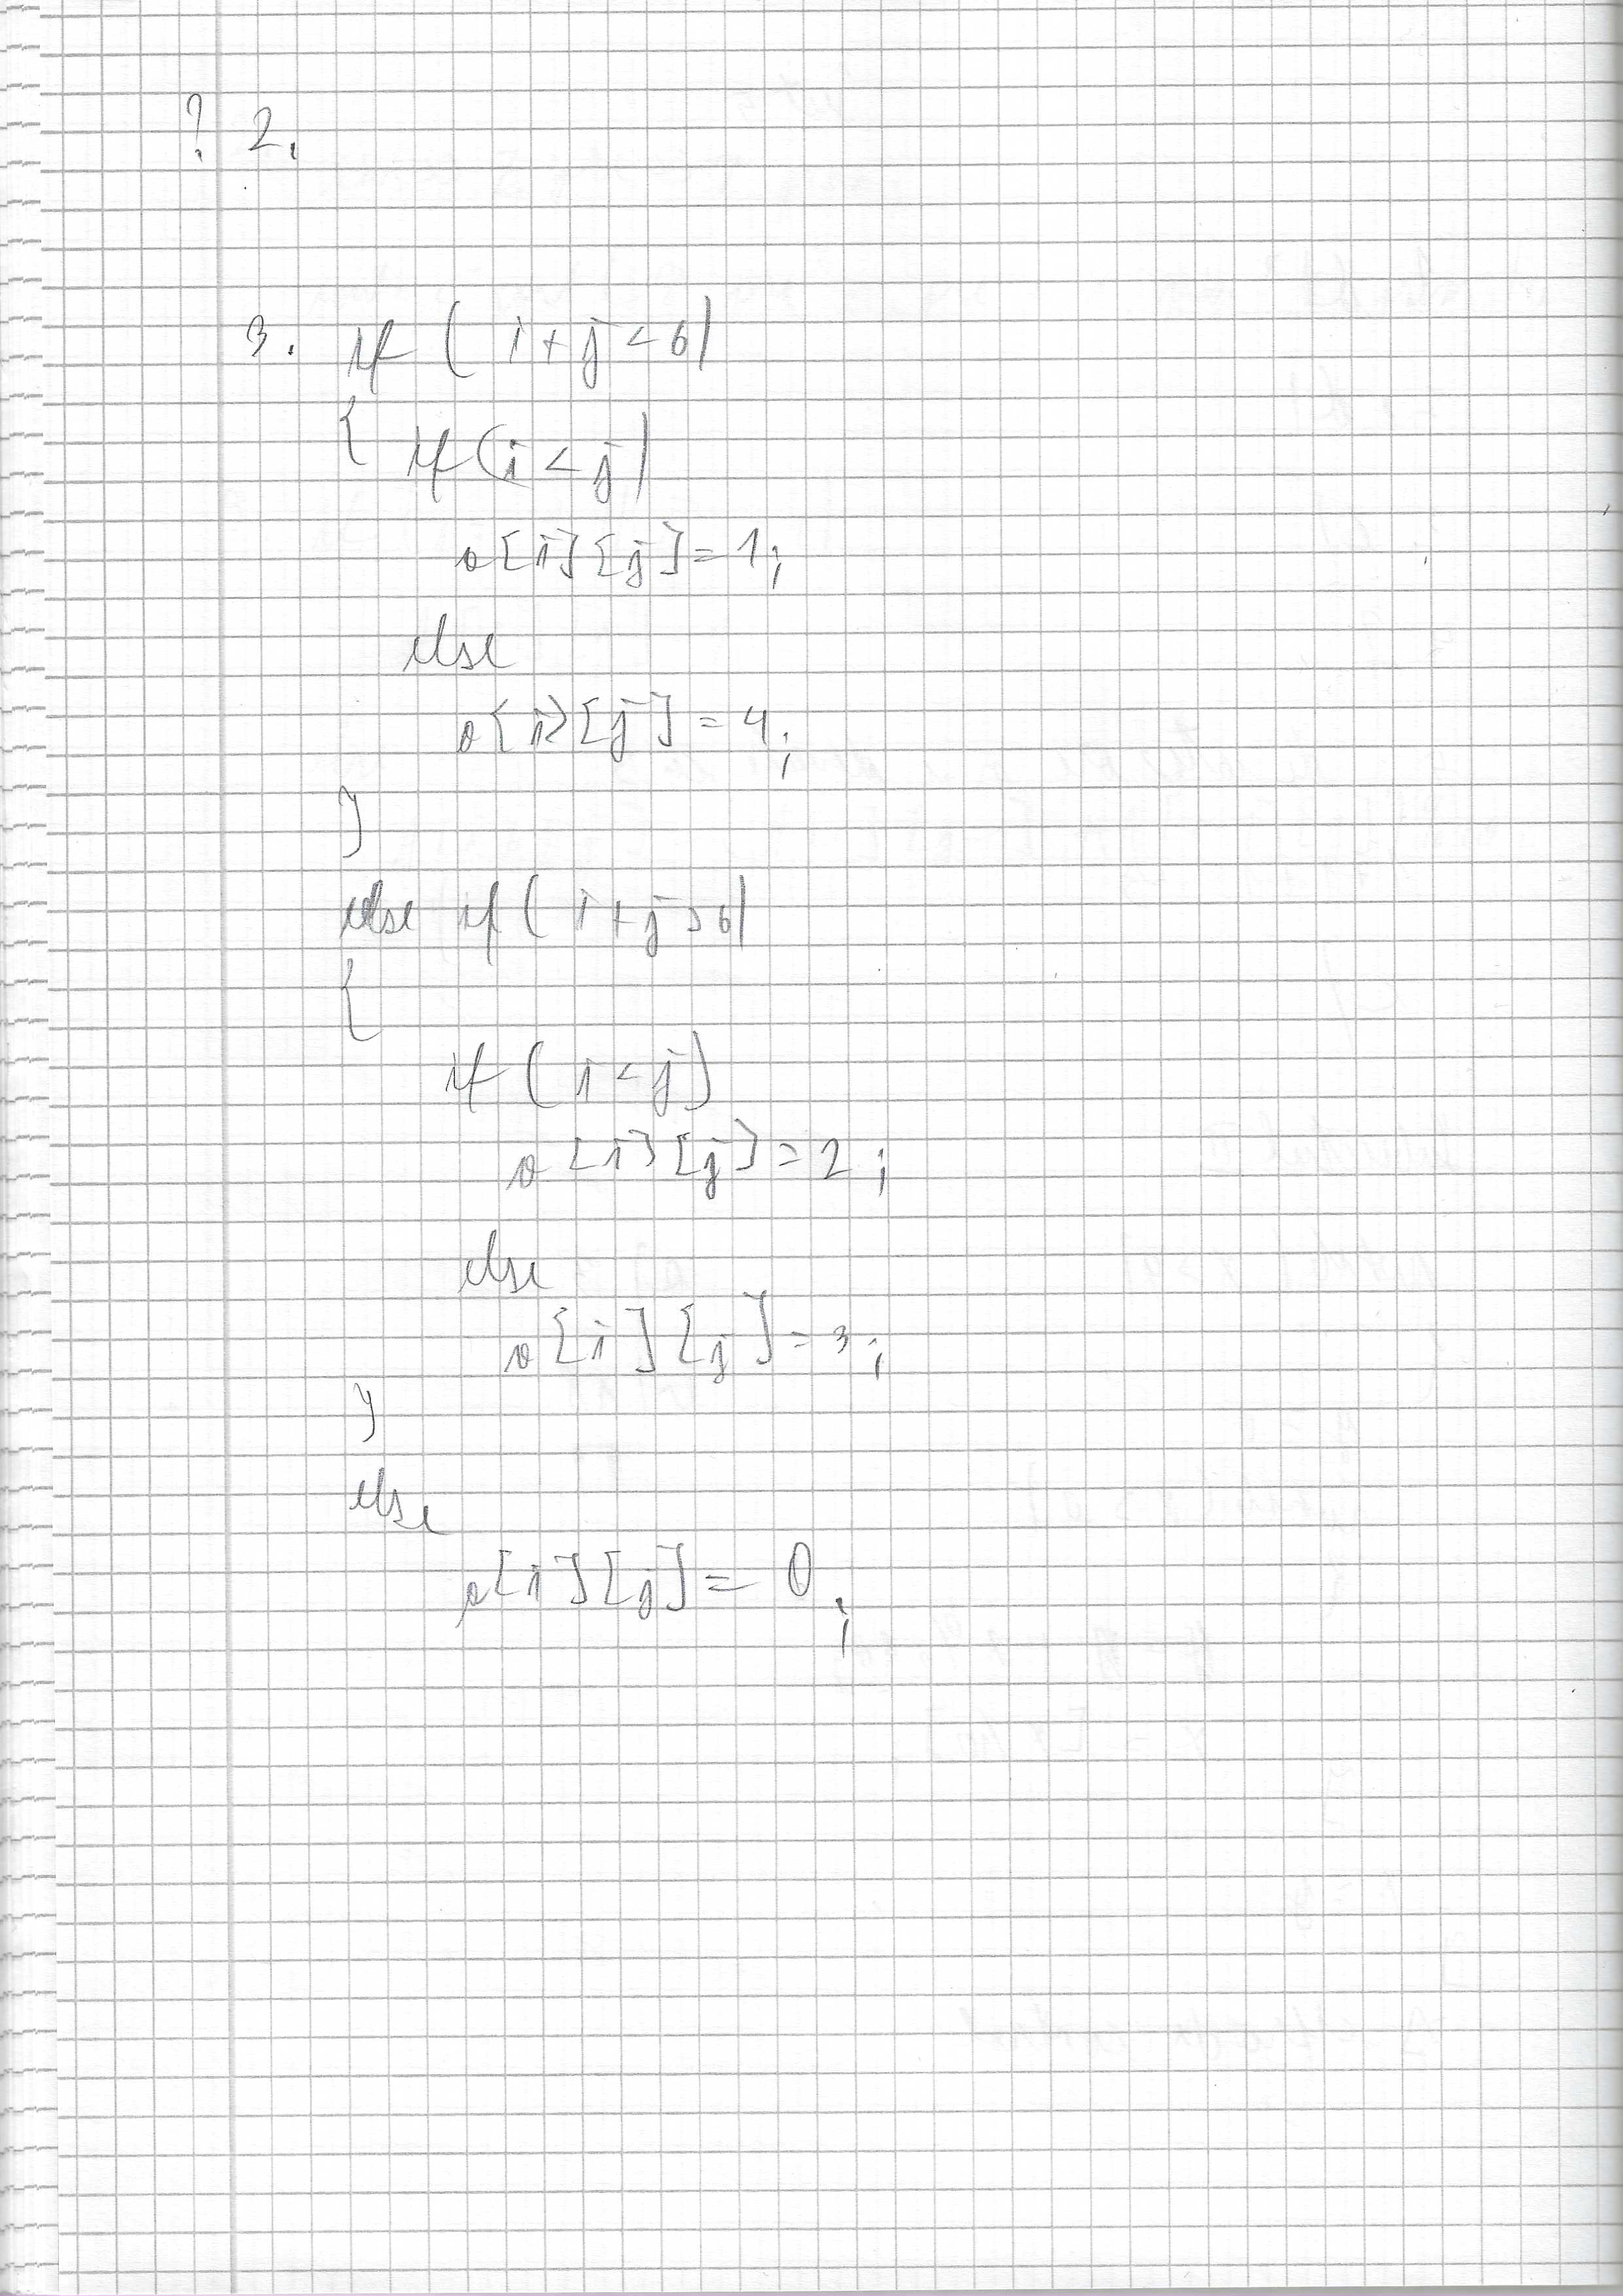 ? 2.
3. if ( i+j<6)
{ if (i<j)
a[i][j]=1;
else
a[i][j]=4;
}
else if ( i+j>6)
{
if ( i<j)
a[i][j]=2;
else
a[i][j]=3;
}
else
a[i][j]= 0;